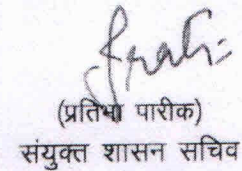 (प्रतिभा पारीक)
संयुक्त शासन सचिव